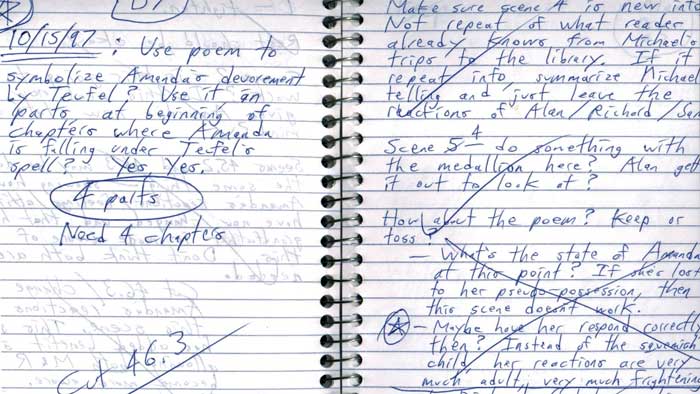 10/15/97: Use poem to
symbolize Amandas devourment
by Teufel? Use it in
parts at beginning of
chapters where Amanda
is falling under Teufels
spell? Yes, Yes.
4 parts
Need 4 chapters
Cut 46.3
Make sure scene 4 is new info
Not repeat of what reader
already knows from Michael's
trips to the library. If it
repeat info, summarize Michael
telling and just leave the
reactions of Alan/Richard/San
Scene 5 4 do something with
the medallion here? Alan gett
it out to look at?
How about the poem? Keep or
toss?
- What's the state of Amanda
at this point? If she's lost
to her pseudo-possession, then
this scene doesn't work.
- Maybe have her respond correctly
then? Instead of the squeamish
child, her reactions are very
much adult, very much frightening